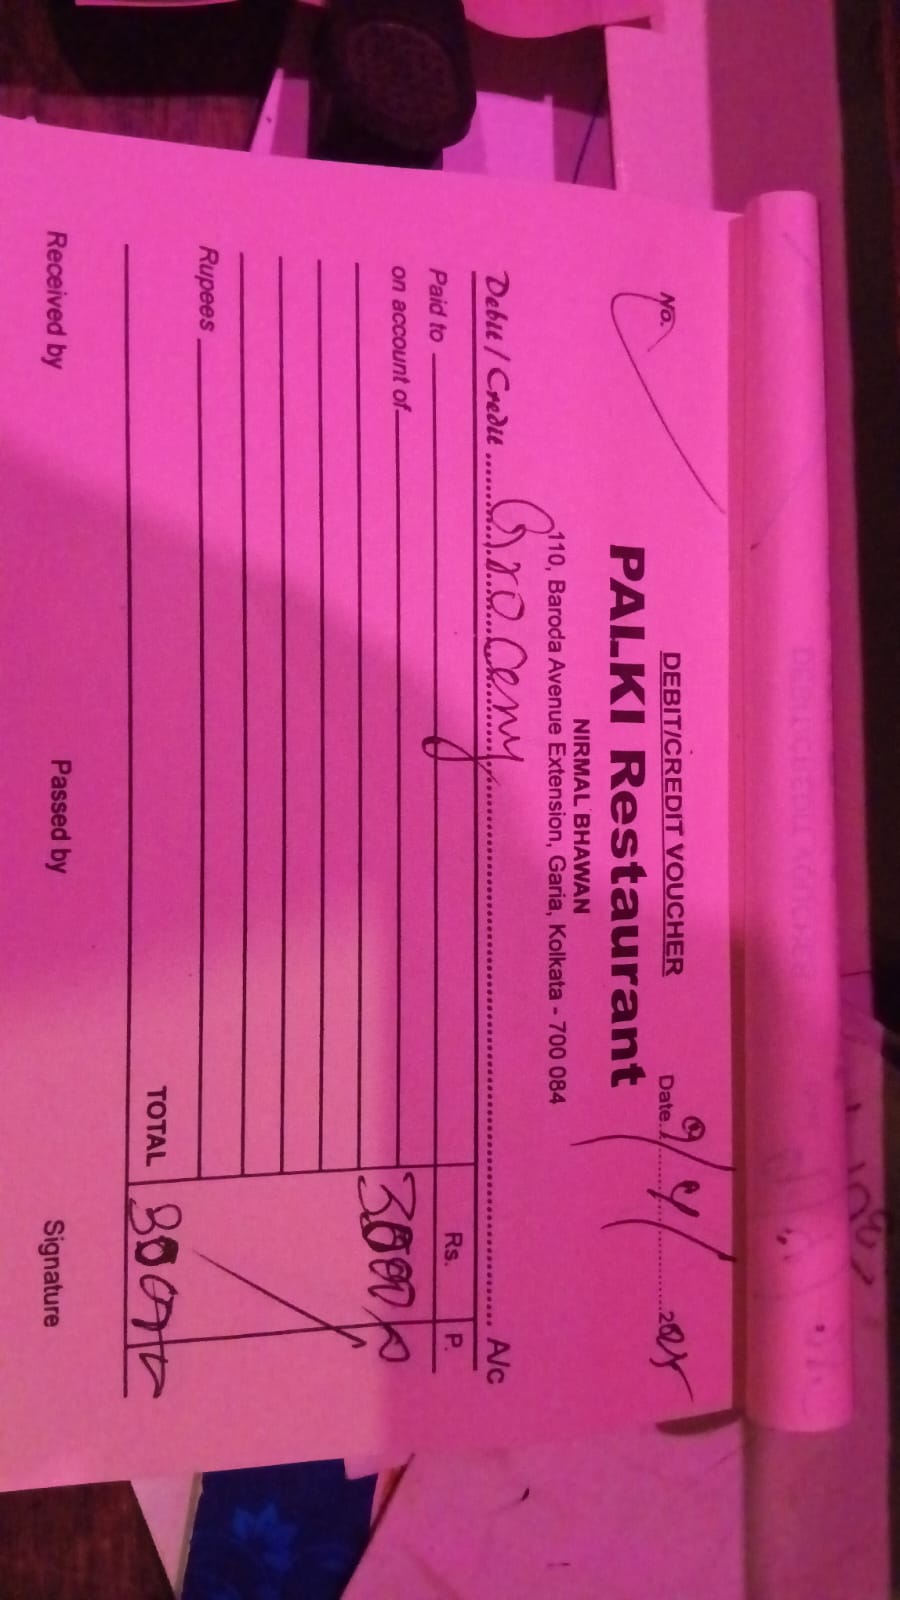 DEBIT/CREDIT VOUCHER
No. Date 9/4/2025
PALKI Restaurant
NIRMAL BHAWAN
110, Baroda Avenue Extension, Garia, Kolkata - 700 084
Debit / Credit A/c
Rs. P.
Paid to
on account of
3000/-
Rupees
TOTAL 3000/-
Received by Passed by Signature